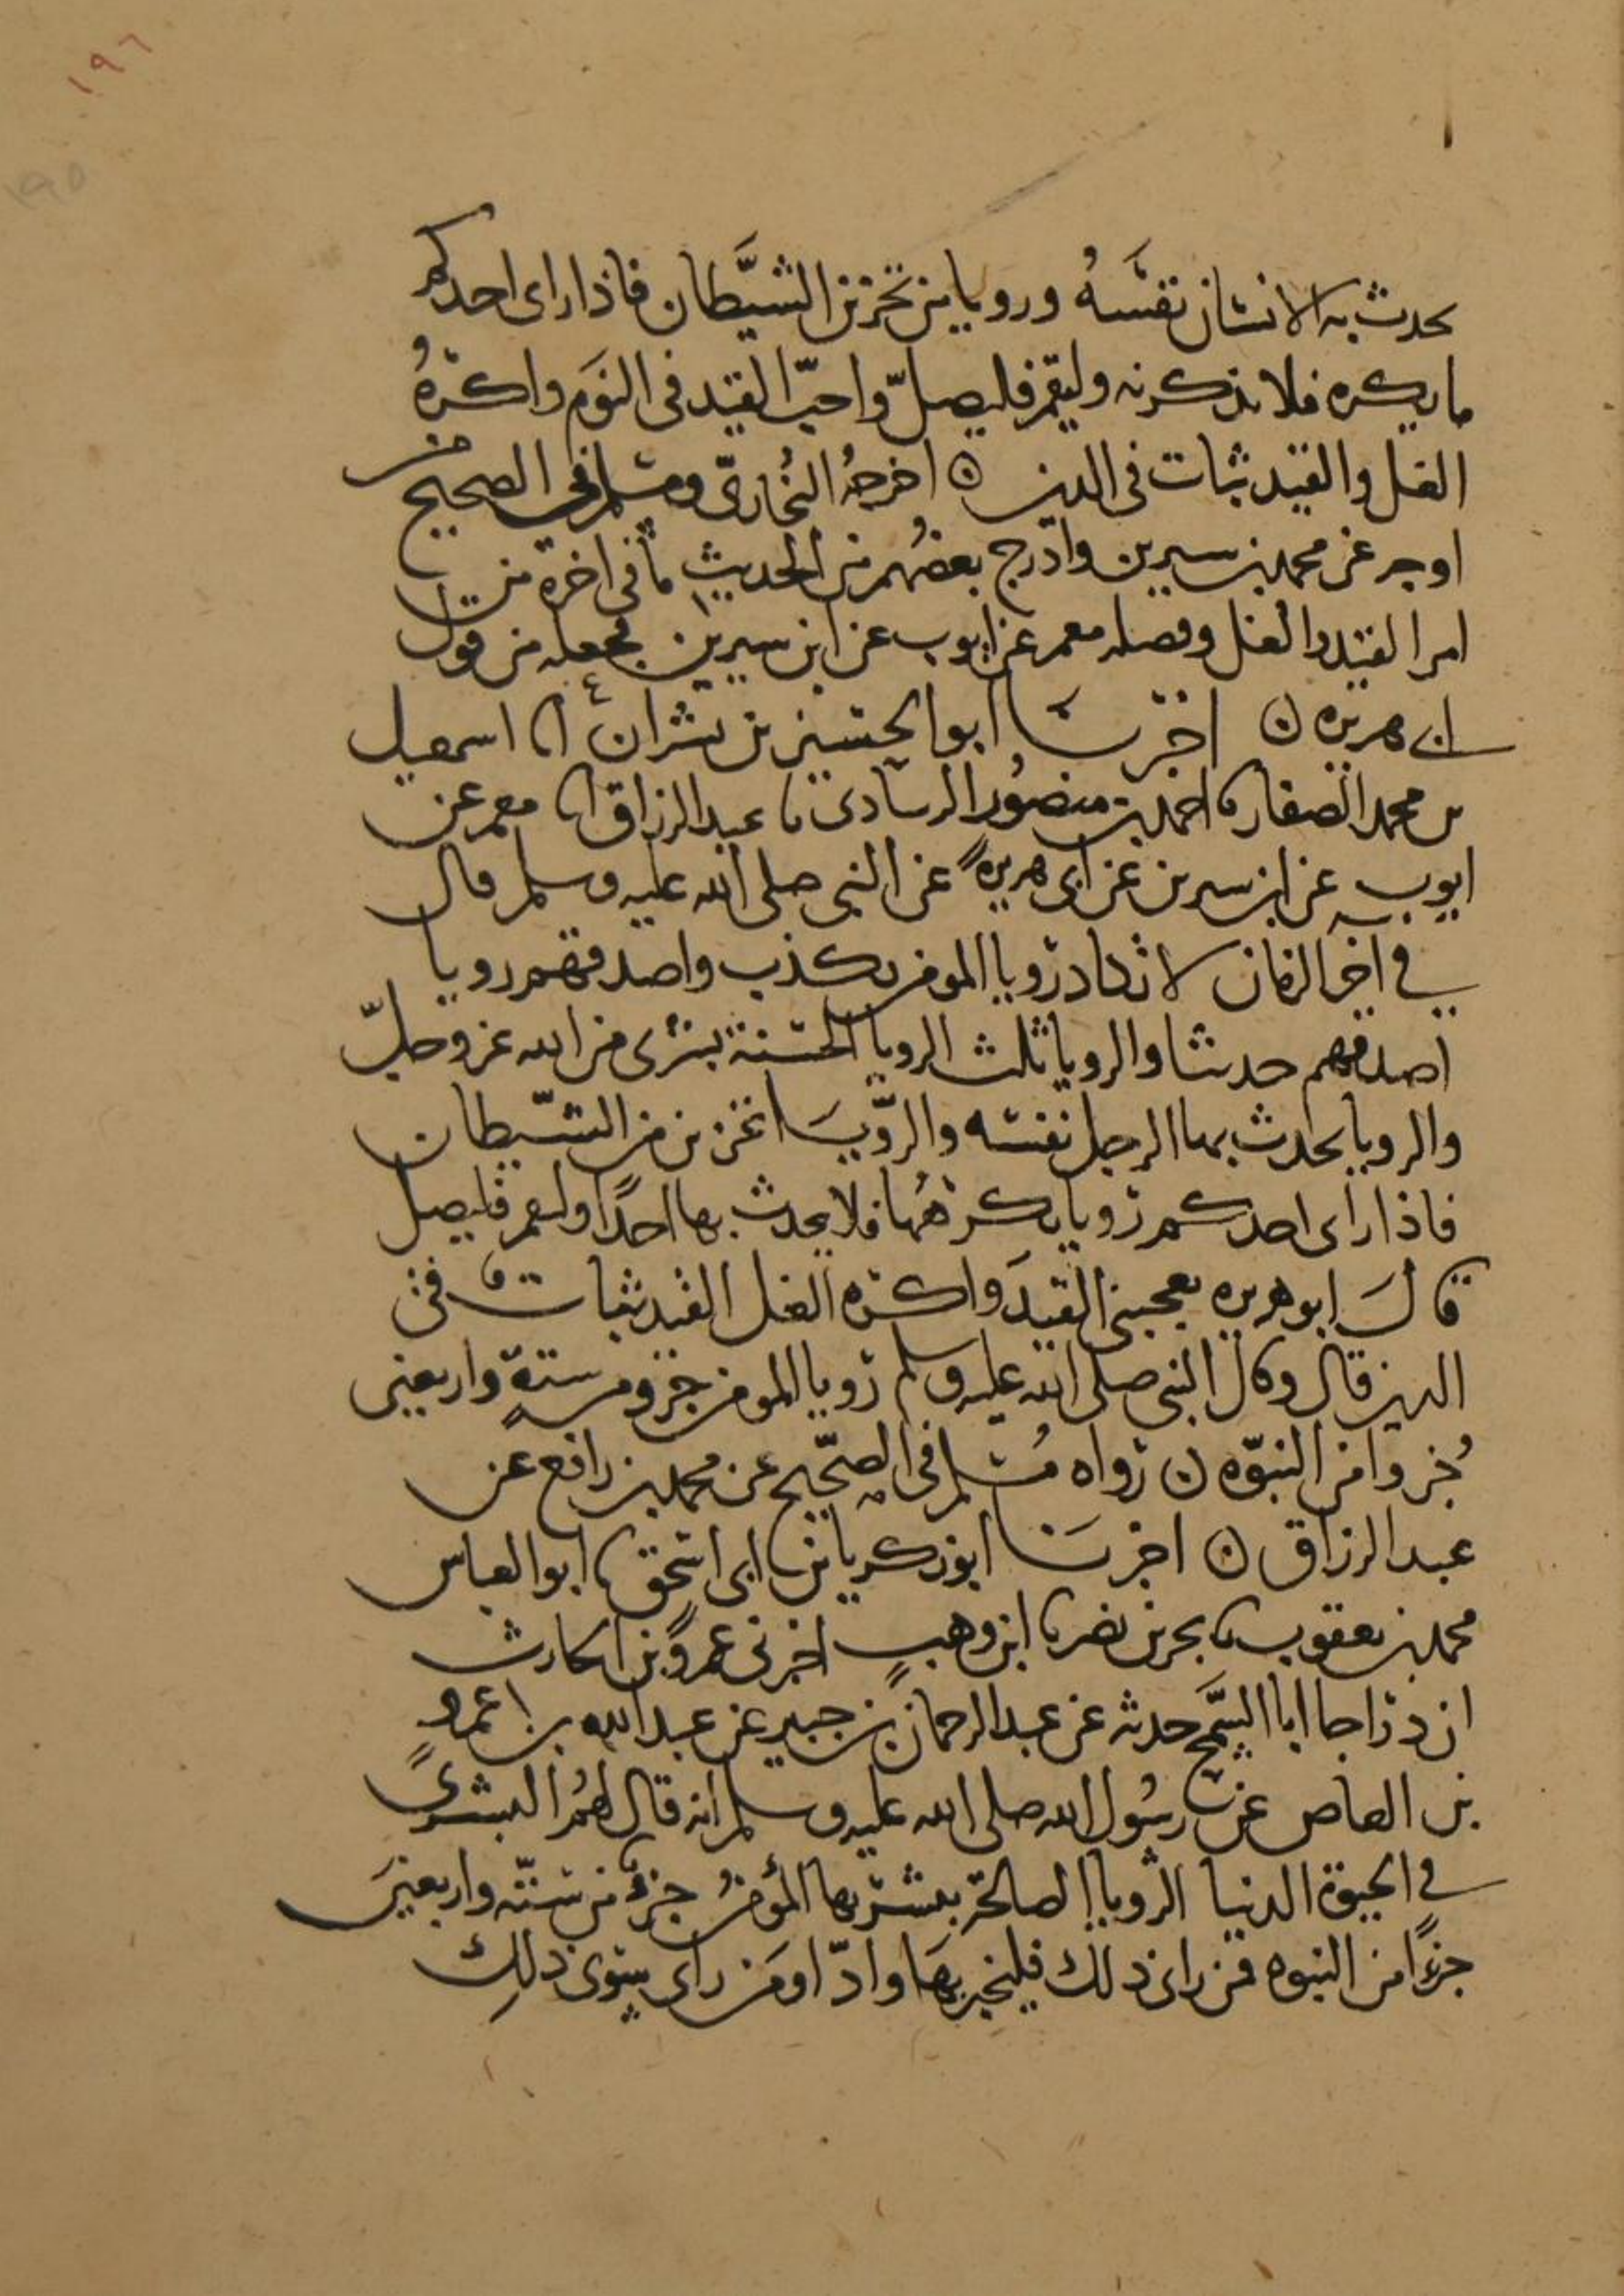 ١٩٦
١٩٥
يحدث به الانسان نفسه ورويا من تحزين الشيطان فاذا راى احدكم
ما يكره فلا يذكرنه وليقم فليصل واحب القيد فى النوم واكره
الغل والقيد ثبات فى الدين ه اخرجه البخارى ومسلم فى الصحيح من
اوجه عن محمد بن سيرين وادرج بعضهم فى الحديث ما فى اخره من
امر القيد والغل وفصله معمر عن ايوب عن ابن سيرين فجعله من قول
ابى هريره ن اخبرنا ابو الحسين بن بشران انا اسمعيل
بن محمد الصفار نا احمد بن منصور الرمادى نا عبد الرزاق انا معمر عن
ايوب عن ابن سيرين عن ابى هريره عن النبي صلى الله عليه وسلم قال
في اخر الزمان لا تكاد رويا المومن تكذب واصدقهم رويا
اصدقهم حديثا والرويا ثلث الرويا الحسنة بشرى من الله عز وجل
والرويا يحدث بها الرجل نفسه والرويا تحزين من الشيطان
فاذا راى احدكم رويا يكرهها فلا يحدث بها احدا وليقم فليصل
قال ابو هريره يعجبنى القيد واكره الغل القيد ثبات فى
الدين قال وقال النبي صلى الله عليه وسلم رويا المومن جزو من ستة واربعين
جزوا من النبوه ن رواه مسلم فى الصحيح عن محمد بن رافع عن
عبد الرزاق ن اخبرنا ابو زكريا بن ابى اسحق نا ابو العباس
محمد بن يعقوب نا بحر بن نصر نا ابن وهب اخبرنى عمرو بن الحارث
ان دراجا ابا السمح حدثه عن عبد الرحمان بن جبير عن عبد الله بن عمرو
بن العاص عن رسول الله صلى الله عليه وسلم انه قال لهم البشرى
في الحيوة الدنيا الرويا الصالحة يبشر بها المؤمن جزء من ستة واربعين
جزءا من النبوه فمن راى ذلك فليخبر بها وادا ومن راى سوى ذلك